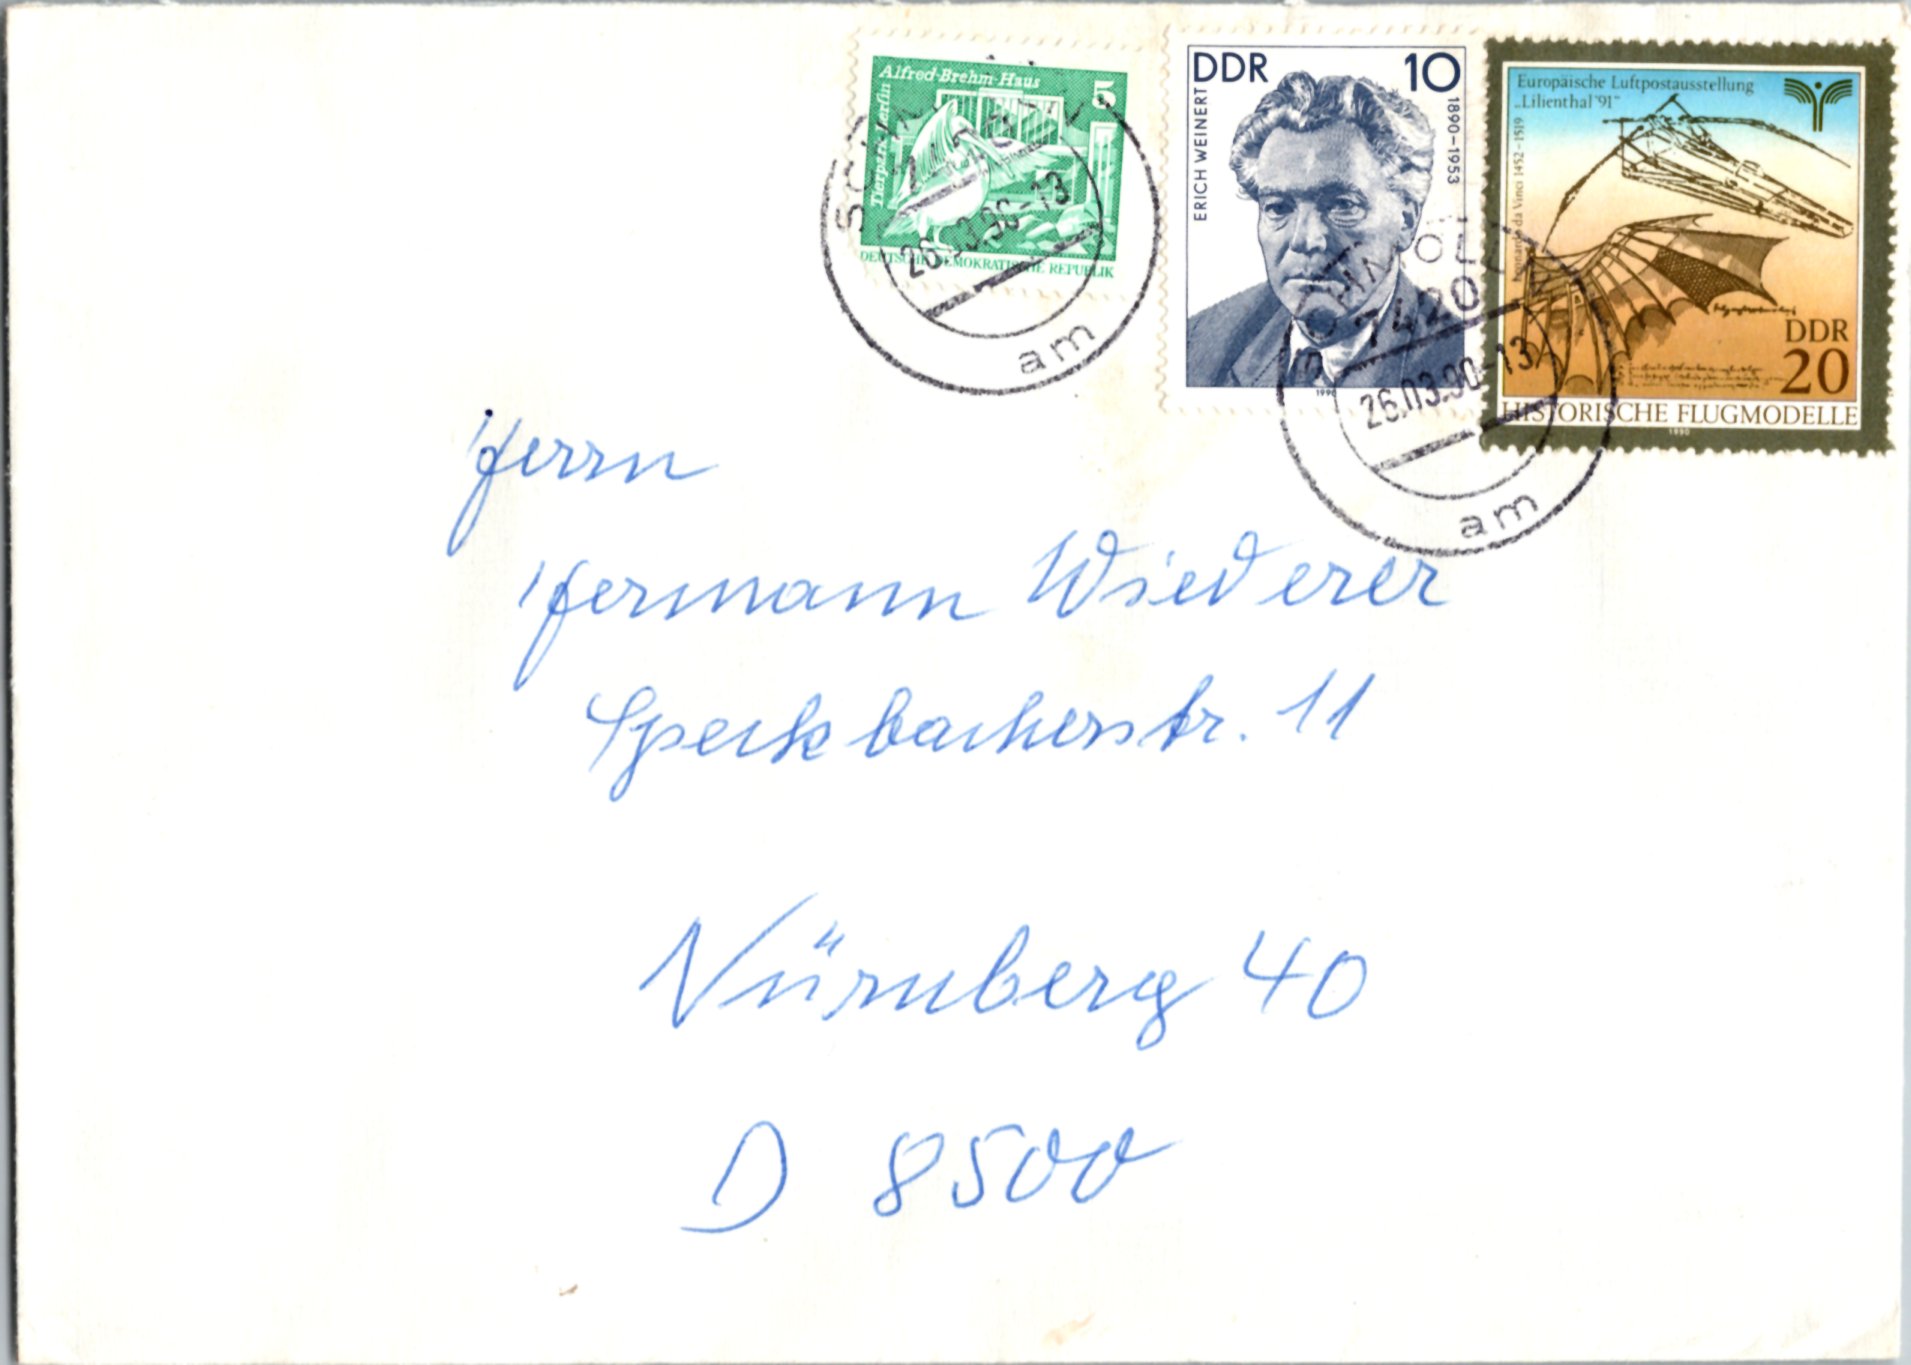 Alfred-Brehm-Haus
5
Tierpark Berlin
DEUTSCHE DEMOKRATISCHE REPUBLIK
DDR 10
ERICH WEINERT
1890-1953
1990
Europäische Luftpostausstellung
„Lilienthal '91"
Leonardo da Vinci 1452-1519
DDR
20
HISTORISCHE FLUGMODELLE
1990
SCHMÖLLN
7420
26.03.90-13
am
SCHMÖLLN
7420
26.03.90-13
am
Herrn
Hermann Wiederer
Speckbacherstr. 11
Nürnberg 40
D 8500